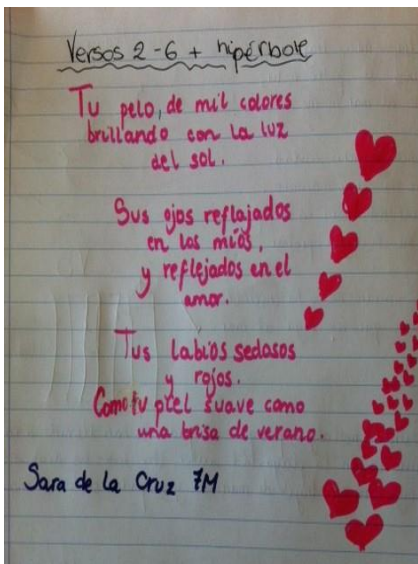 Versos 2-6 + hipérbole
Tu pelo, de mil colores
brillando con la luz
del sol.
Sus ojos reflajados
en los míos,
y reflejados en el
amor.
Tus labios sedasos
y rojos.
Como tu piel suave como
una brisa de verano.
Sara de la Cruz 7M